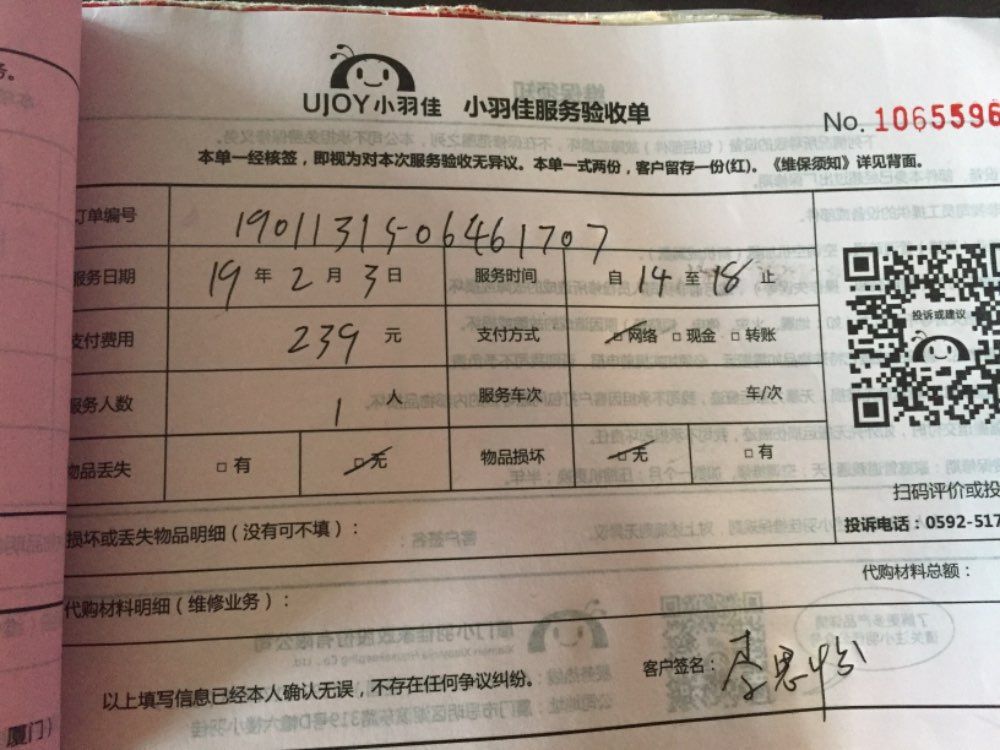 务。
UJOY小羽佳 小羽佳服务验收单
No. 1065596
本单一经核签，即视为对本次服务验收无异议。本单一式两份，客户留存一份(红)。《维保须知》详见背面。
订单编号 1901131506461707
服务日期 19 年 2 月 3 日 服务时间 自 14 至 18 止
支付费用 239 元 支付方式 □ 网络 □ 现金 □ 转账
服务人数 1 人 服务车次 车/次
物品丢失 □ 有 □ 无 物品损坏 □ 无 □ 有
投诉或建议
扫码评价或投
投诉电话：0592-517
损坏或丢失物品明细（没有可不填）：
代购材料明细（维修业务）：
代购材料总额：
以上填写信息已经本人确认无误，不存在任何争议纠纷。
客户签名：
厦门）